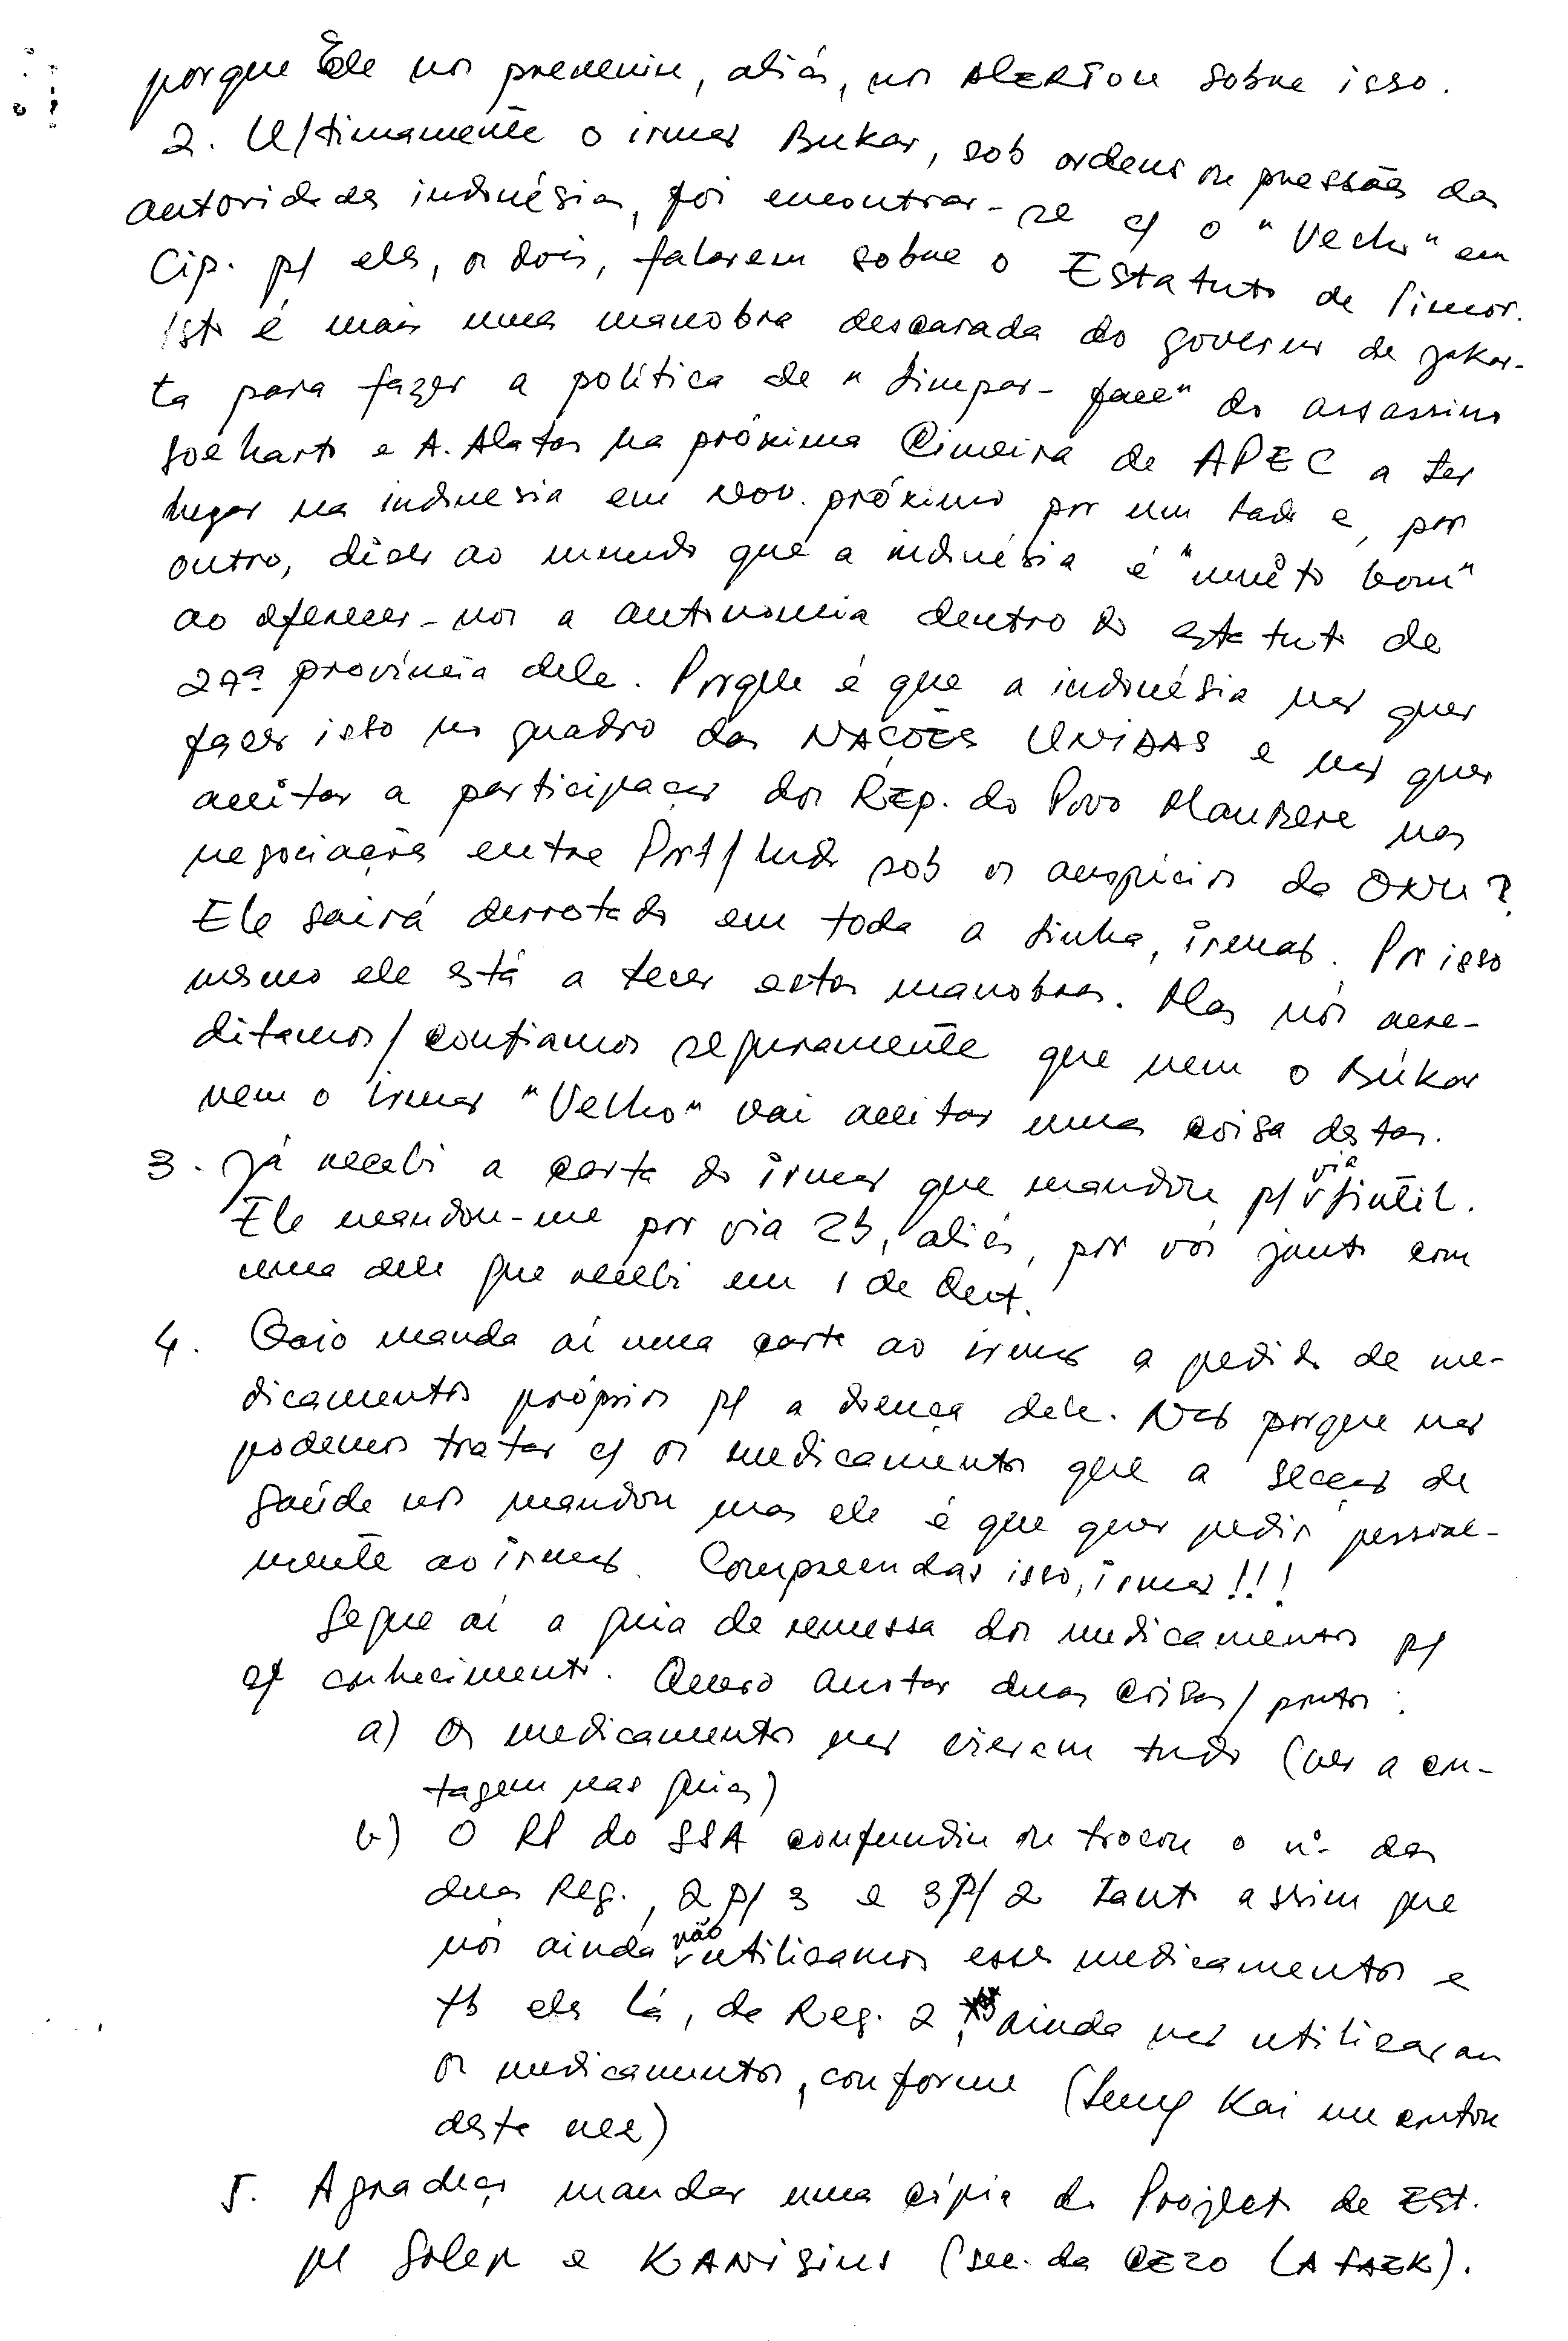 porque Ele nos preveniu, aliás, nos AlERTou sobre isso.
2. Ultimamente o irmão Bukar, sob ordens ou pressões das
autoridades indonésias, foi encontrar-se c/ o "Velho" em
Cip. p/ eles, os dois, falarem sobre o Estatuto de Timor.
Isto é mais uma manobra descarada do governo de Jakar-
ta para fazer a política de "limpar-face" do assassino
Soeharto e A. Alatas na próxima Cimeira de APEC a ter
lugar na indonesia em Nov. próximo por um lado e, por
outro, dizer ao mundo que a indonésia é "muito bom"
ao oferecer-nos a autonomia dentro do estatuto de
27ª província dele. Porque é que a indonésia não quer
fazer isto no quadro das NAÇÕES UNIDAS e não quer
aceitar a participação dos Rep. do Povo MauBere nas
negociações entre Port/Indo sob os auspícios da ONU?
Ele sairá derrotado em toda a linha, irmão. Por isso
mesmo ele está a tecer estas manobras. Mas nós acre-
ditamos/confiamos seguramente que nem o Búkar
nem o irmão "Velho" vai aceitar uma coisa destas.
3. Já recebi a carta do irmão que mandou p/ via
Ele mandou-me por via 25, aliás, por vós junto com
uma dele que recebi em 1 de Out.
4. manda aí uma carta ao irmão a pedido de me-
dicamentos próprios p/ a doença dele. Não porque não
podemos tratar c/ os medicamentos que a Secção de
Saúde nos mandou mas ele é que quer pedir pessoal-
mente ao irmão. Compreendas isso, irmão!!!
Segue aí a guia de remessa dos medicamentos p/
conhecimento. Quero anotar duas coisas/pontos:
a) Os medicamentos não vieram tudo (ver a con-
tagem nas guias)
b) O RP do SSA confundiu ou trocou o nº das
duas Reg., 2 p/ 3 e 3 p/ 2 Tanto assim que
nós ainda não utilizamos esses medicamentos e
tb eles lá, da Reg. 2, ainda não utilizaram
os medicamentos, conforme (Leng Kai me contou
desta vez)
5. Agradeço mandar uma cópia do Projecto de Est.
p/ Solep e KANisius (sec. da CEZO (A FAEK).